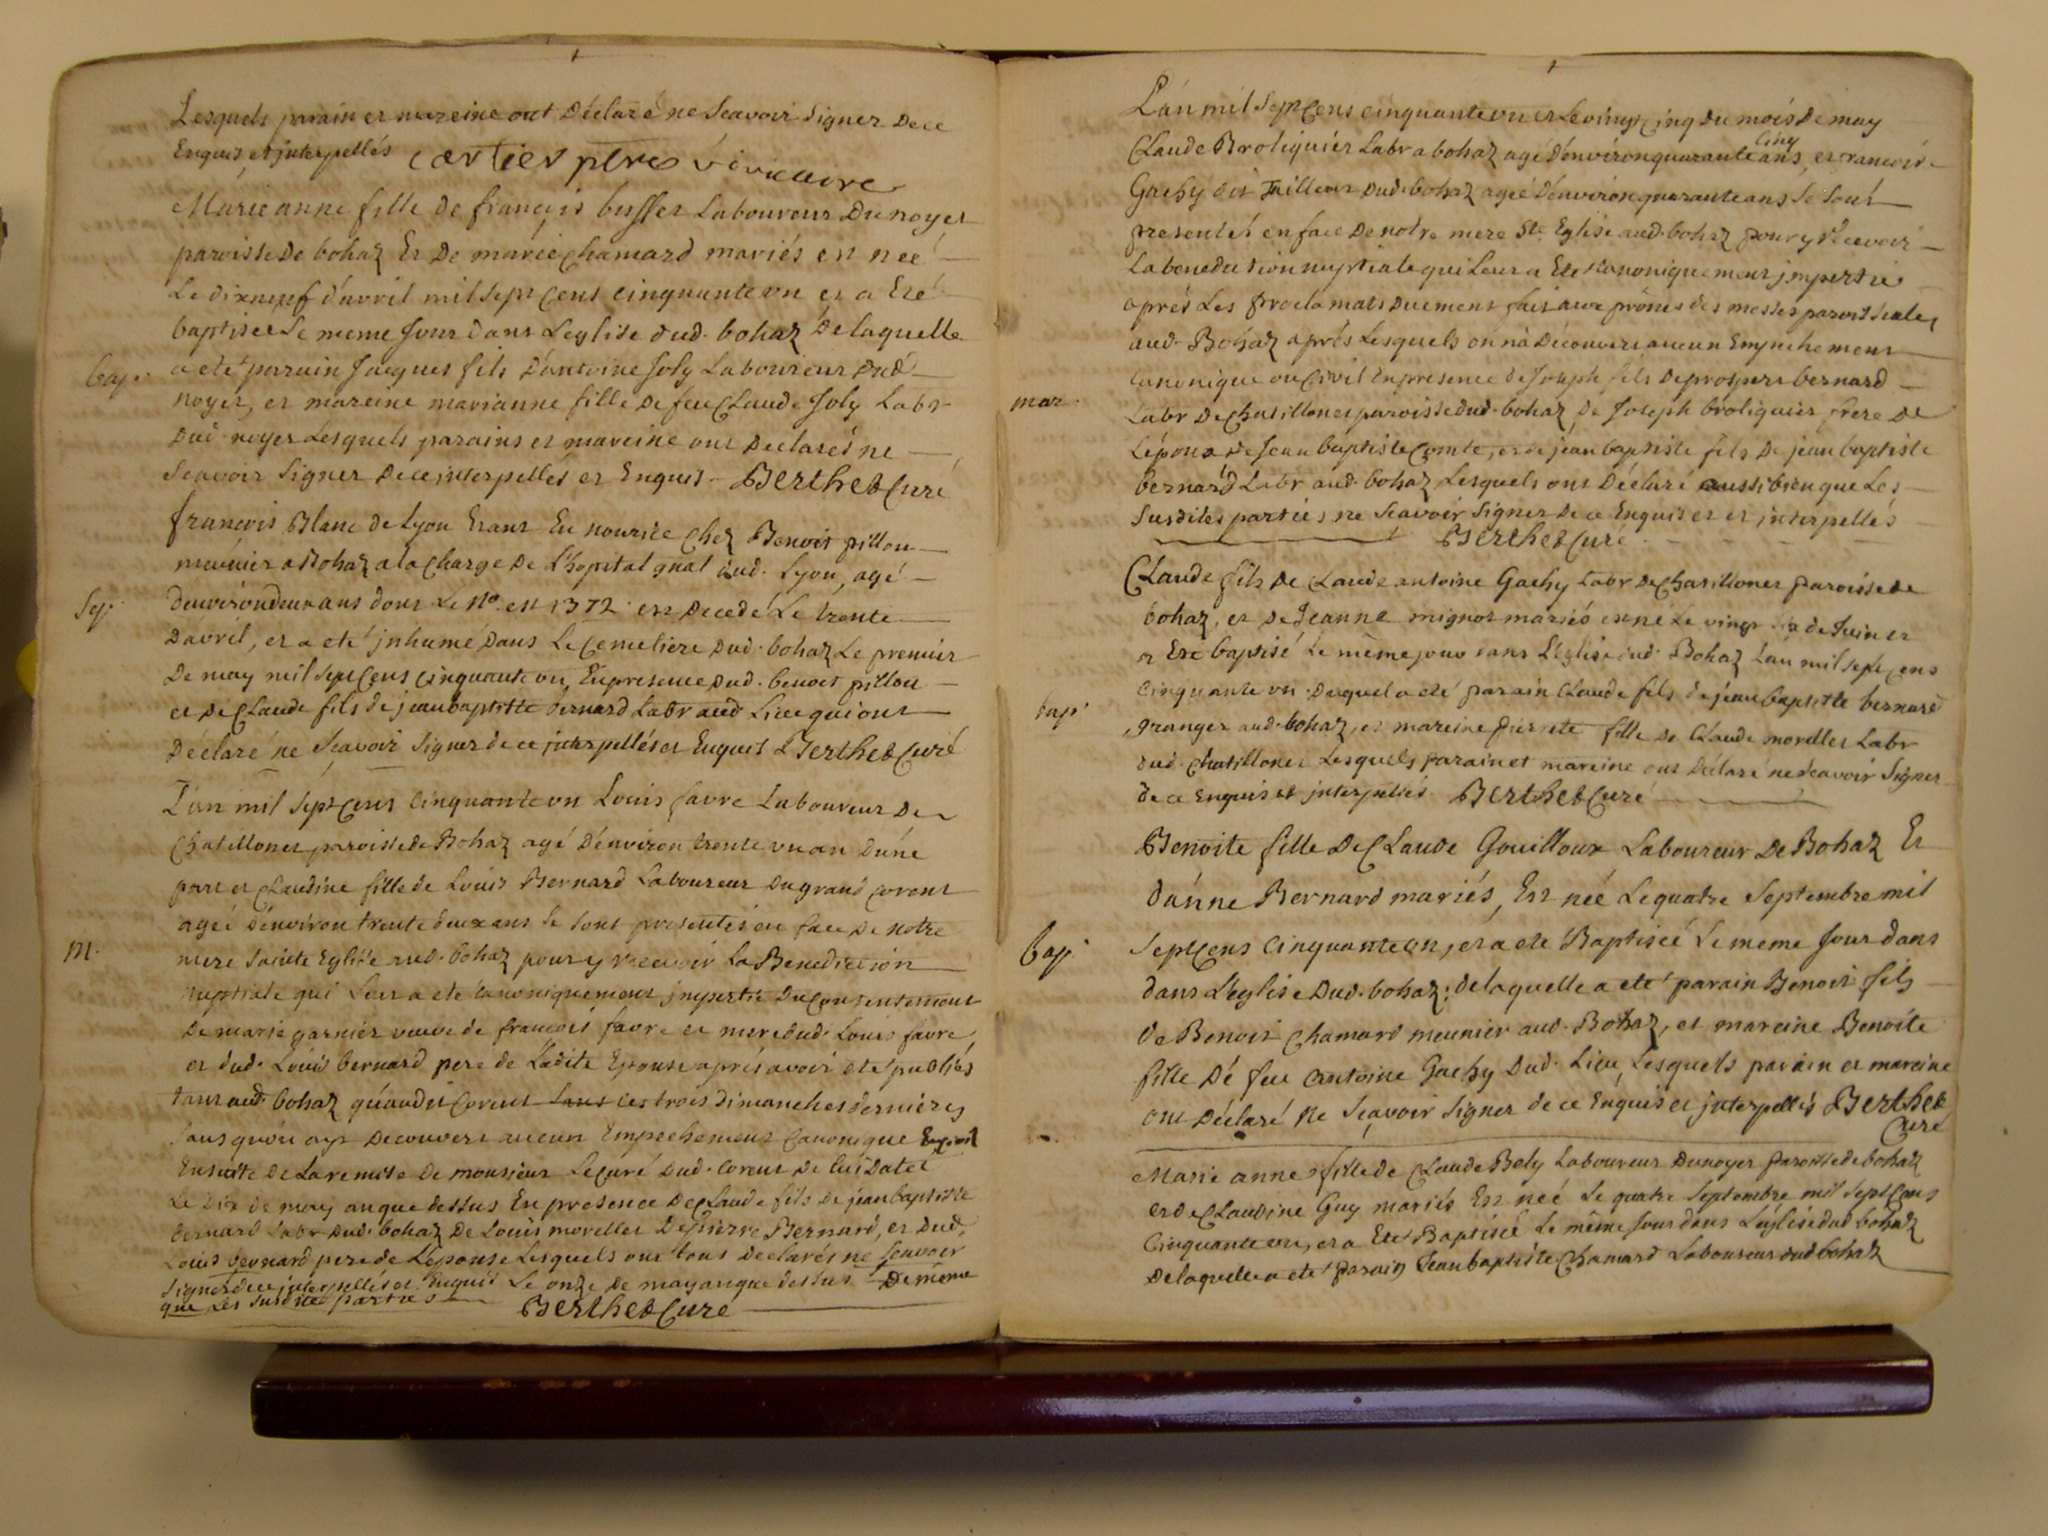 Lesquels parain et mareine ont déclaré ne scavoir signer de ce
Enquis et interpellés cartier ptre vicaire
Marie anne fille de françois buffet Laboureur Du noyer
paroisse De bohaz Et De marie Chamard mariés est neé
Le dixneuf d'avril mil sept Cens cinquante vn et a Eté
baptiseé Le meme Jour dans L'eglise dud. bohaz De laquelle
Bap. a eté parain Jacques fils D'antoine Joly Laboureur Dud
noyer, et mareine marianne fille De feu Claude Joly Labr
Dud. noyer Lesquels parains et mareine ont Declarés ne
Scavoir Signer De ce interpellés et Enquis. Berthet Curé
françois Blanc de Lyon Etant En nourice Chez Benoit pillon
meunier a Bohaz a la Charge De L'hopital gnal dud. Lyon, agé
Sep. denviron deux ans dont Le No. est 1372 est Decedé Le trente
D'avril, et a eté inhumé Dans Le Cemetiere Dud. bohaz Le premier
De may mil sept Cens Cinquante vn, En presence Dud. benoit pillon
et De Claude fils de jean baptiste bernard Labr aud Lieu qui ont
Déclaré ne Scavoir Signer de ce interpellés et Enquis Berthet Curé
L'an mil Sept Cens Cinquante vn Louis favre Laboureur De
Chatillonet paroisse de Bohaz agé D'environ trente vn an D'une
part et Claudine fille de Louis Bernard Laboureur Du grand Corent
ageé D'environ trente deux ans Se sont presentés en face De notre
M. mere Sainte Eglise aud. bohaz pour y recevoir La Benediction
nuptiale qui Leur a eté canoniquement impertie Du Consentement
De marie garnier veuve de françois favre et mere dud. Louis favre,
et dud. Louis bernard pere de Ladite Epouse aprés avoir eté publiés
tant aud. bohaz qu'audit Corent les trois Dimanches derniers
Sans qu'on ayt Decouvert aucun Empechement Canonique
Ensuite De La remise de monsieur Le Curé Dud. Corent De lui Datee
Le Dix de may an que dessus En presence De Claude fils De jean baptiste
Bernard Labr Dud. bohaz De Louis morellet De Pierre Bernard, et Dud.
Louis bernard pere de L'epouse Lesquels ont tous Declarés ne Scavoir
Signer de ce interpellés et Enquis Le onze De may an que dessus De même
que Les susdites parties Berthet Curé
L'an mil Sept Cens cinquante vn et Le vingt cinq du mois De may
Claude Broliquier Labr a bohaz agé D'environ quarante cinq ans, et francoise
Gachy dit Tailleur Dud. bohaz ageé D'environ quarante ans Se Sont
presentés en face De notre mere Ste. Eglise aud. bohaz pour y recevoir
La benediction nuptiale qui Leur a Eté Kanoniquement impertie
aprés Les Proclamats Duement fais aux prônes des messes paroissiales
aud. Bohaz aprés Lesquels on n'a Découvert aucun Empechement
canonique ou Civil En presence de Joseph fils De prosper bernard
mar. Labr De Chatillonet paroisse dud. bohaz, De Joseph broliquier frere De
L'époux de Jean baptiste Comte, et de jean baptiste fils De jean baptiste
bernard Labr aud. bohaz Lesquels ont Déclaré aussi bien que Les
Susdites parties ne Scavoir Signer De ce Enquis et interpellés
Berthet Curé
Claude fils De Claude antoine Gachy Labr De Chatillonet paroisse de
bohaz, et De Jeanne mignot mariés est né Le vingt de Juin et
a Eté baptisé Le même jour dans L'Eglise dud. Bohaz L'an mil sept cens
cinquante vn. Duquel a eté parain Claude fils de jean baptiste bernard
bap. granger aud. bohaz, et mareine pierrete fille De Claude morellet Labr
dud. Chatillonet Lesquels parain et mareine ont Déclaré ne scavoir Signer
de ce Enquis et interpellés. Berthet Curé
Benoite fille De Claude Gouilloux Laboureur De Bohaz Et
d'anne Bernard mariés, Est neé Le quatre Septembre mil
Bap. Sept Cens Cinquante vn, et a eté Baptiseé Le meme Jour dans
dans L'eglise Dud. bohaz; de laquelle a eté parain Benoit fils
de Benoit Chamard meunier aud. Bohaz, et mareine Benoite
fille De feu antoine Gachy Dud. Lieu, Lesquels parain et mareine
ont Déclaré ne Scavoir Signer de ce Enquis et interpellés Berthet
Curé
Marie anne fille de Claude Bely Laboureur Du noyer paroisse de bohaz
et de Claudine Guy mariés Est neé le quatre Septembre mil sept Cens
Cinquante vn, et a Eté Baptiseé Le même Jour dans L'église dud bohaz
De laquelle a eté parain Jean baptiste Chamard Laboureur dud bohaz